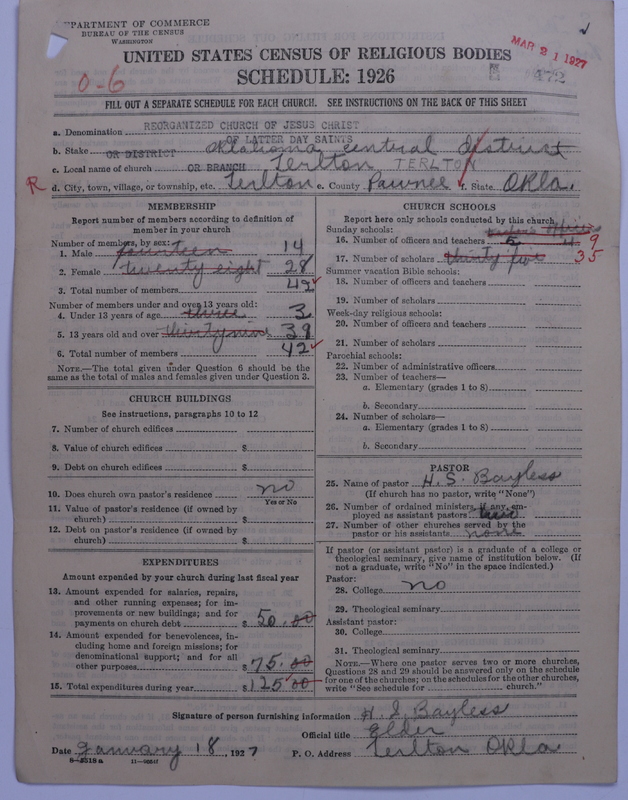 DEPARTMENT OF COMMERCE
BUREAU OF THE CENSUS
WASHINGTON
MAR 21 1927
UNITED STATES CENSUS OF RELIGIOUS BODIES
0-6
SCHEDULE: 1926
472
FILL OUT A SEPARATE SCHEDULE FOR EACH CHURCH. SEE INSTRUCTIONS ON THE BACK OF THIS SHEET
a. Denomination REORGANIZED CHURCH OF JESUS CHRIST
OF LATTER DAY SAINTS
b. Stake OR DISTRICT Oklahoma central district
c. Local name of church OR BRANCH Terlton TERLTON
R d. City, town, village, or township, etc. Terlton e. County Pawnee f. State Okla.
MEMBERSHIP
Report number of members according to definition of
member in your church
Number of members, by sex:
1. Male fourteen 14
2. Female twenty eight 28
3. Total number of members 42
Number of members under and over 13 years old:
4. Under 13 years of age three 3
5. 13 years old and over thirty nine 39
6. Total number of members 42
NOTE.—The total given under Question 6 should be the
same as the total of males and females given under Question 3.
CHURCH BUILDINGS
See instructions, paragraphs 10 to 12
7. Number of church edifices
8. Value of church edifices $
9. Debt on church edifices $
10. Does church own pastor's residence no
Yes or No
11. Value of pastor's residence (if owned by
church) $
12. Debt on pastor's residence (if owned by
church) $
EXPENDITURES
Amount expended by your church during last fiscal year
13. Amount expended for salaries, repairs,
and other running expenses; for im-
provements or new buildings; and for
payments on church debt $ 50.00
14. Amount expended for benevolences, in-
cluding home and foreign missions; for
denominational support; and for all
other purposes $ 75.00
15. Total expenditures during year $ 125.00
CHURCH SCHOOLS
Report here only schools conducted by this church
Sunday schools:
16. Number of officers and teachers 5 4 9
17. Number of scholars thirty five 35
Summer vacation Bible schools:
18. Number of officers and teachers
19. Number of scholars
Week-day religious schools:
20. Number of officers and teachers
21. Number of scholars
Parochial schools:
22. Number of administrative officers
23. Number of teachers—
a. Elementary (grades 1 to 8)
b. Secondary
24. Number of scholars—
a. Elementary (grades 1 to 8)
b. Secondary
PASTOR
25. Name of pastor H. S. Bayless
(If church has no pastor, write "None")
26. Number of ordained ministers, if any, em-
ployed as assistant pastors
27. Number of other churches served by the
pastor or his assistants none
If pastor (or assistant pastor) is a graduate of a college or
theological seminary, give name of institution below. (If
not a graduate, write "No" in the space indicated.)
Pastor:
28. College no
29. Theological seminary
Assistant pastor:
30. College
31. Theological seminary
NOTE.—Where one pastor serves two or more churches,
Questions 28 and 29 should be answered only on the schedule
for one of the churches; on the schedules for the other churches,
write "See schedule for church."
Signature of person furnishing information H. S. Bayless
Official title Elder
Date January 18, 1927 P. O. Address Terlton Okla
8—5318 a